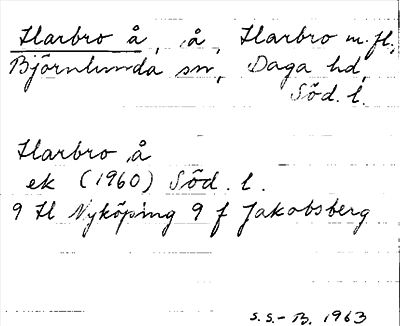 Harbro å, å, Harbro m.fl.,
Björnlunda sn, Daga hd,
Söd. l.
Harbro å
ek (1960) Söd. l.
9 H Nyköping 9 f Jakobsberg
S.S.-B. 1963